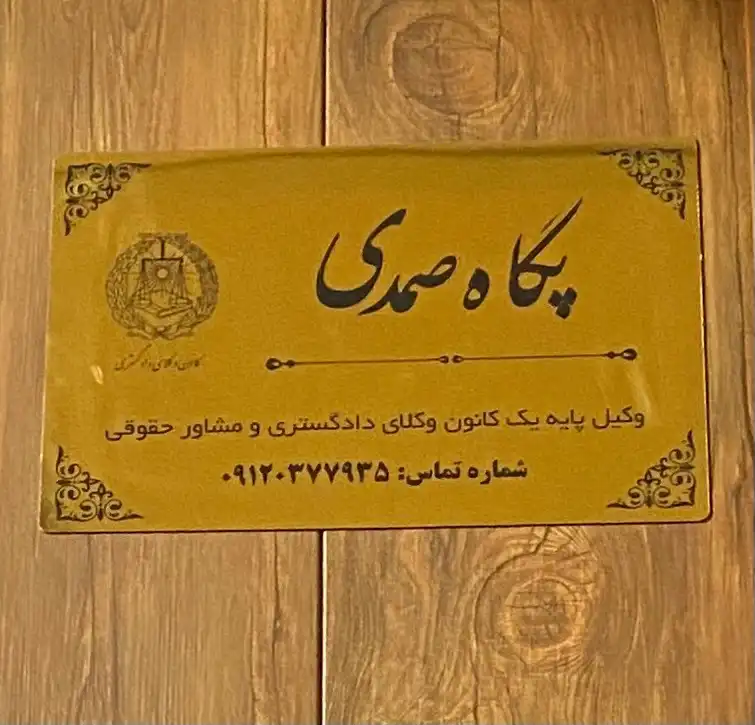 پگاه صمدی
کانون وکلای دادگستری
وکیل پایه یک کانون وکلای دادگستری و مشاور حقوقی
شماره تماس: ۰۹۱۲۰۳۷۷۹۳۵